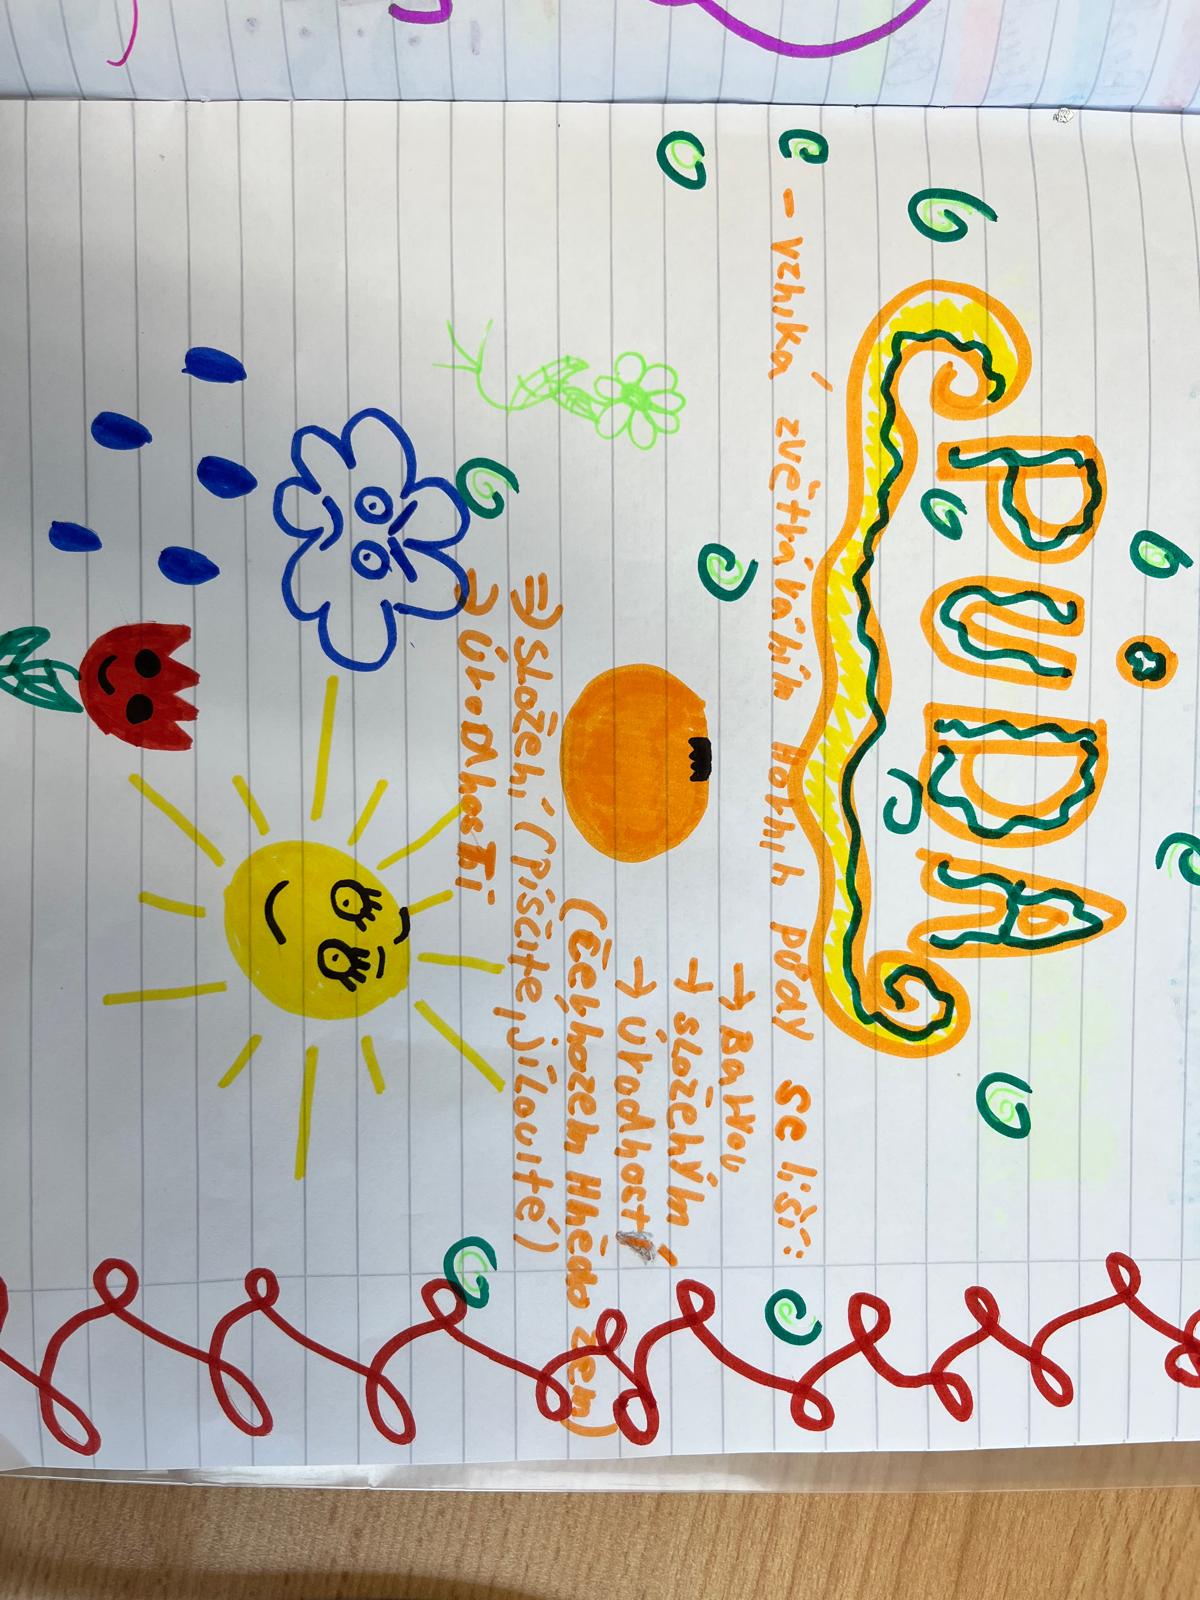 PŮDA
- vzniká zvětráváním horních půdy se liší:
→ Barvou
→ složením
→ Úrodností
(Čenhozem Hnědo zem)
⇒ Složení (písčité, jílovité)
→ Úrodnosti